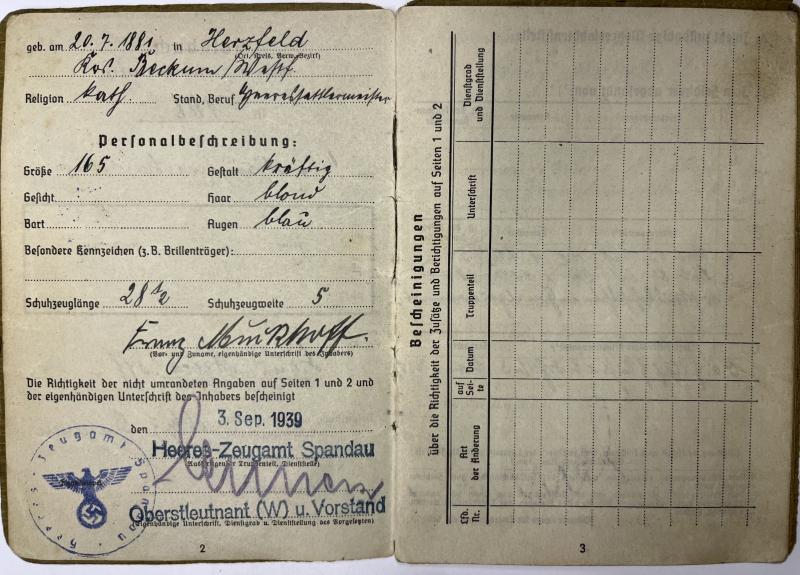 geb. am 20.7.1881 in Herzfeld
(Ort, Kreis, Verw.-Bezirk)
Krs. Beckum/Westf
Religion kath. Stand, Beruf Heeressattlermeister
Personalbeschreibung:
Größe 165 Gestalt kräftig
Gesicht Haar blond
Bart Augen blau
Besondere Kennzeichen (z.B. Brillenträger):
Schuhzeuglänge 28 1/2 Schuhzeugweite 5
Franz Muckhoff.
(Vor- und Zuname, eigenhändige Unterschrift des Inhabers)
Die Richtigkeit der nicht umrandeten Angaben auf Seiten 1 und 2 und
der eigenhändigen Unterschrift des Inhabers bescheinigt
den 3. Sep. 1939
Heeres-Zeugamt Spandau
(Ausfertigender Truppenteil, Dienststelle)
Oberstleutnant (W) u. Vorstand
(Eigenhändige Unterschrift, Dienstgrad u. Dienststellung des Vorgesetzten)
Heeres-Zeugamt Spandau
2
Bescheinigungen
über die Richtigkeit der Zusätze und Berichtigungen auf Seiten 1 und 2
Lfd. Nr.
Art der Änderung
auf Seite
Datum
Truppenteil
Unterschrift
Dienstgrad und Dienststellung
3